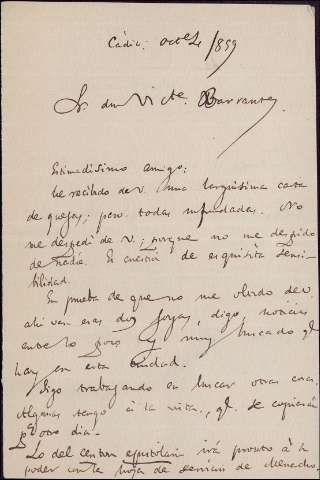 Cádiz; Oct.e 4/859
Sr. don Vic.te Barrantes
Estimadísimo amigo:
he recibido de V. una larguísima carta
de quejas; pero todas infundadas. No
me despedí de V; porque no me despido
de nadie. Es cuestión de esquisita sensi-
bilidad.
En prueba de que no me olvido de V.
ahí van esas dos joyas, digo, noticias
entre lo poco y muy buscado q.e
hay en esta ciudad.
Sigo trabajando en buscar otras cosas.
Algunas tengo á la vista, q.e se copiarán
p.a otro día.
Lo del centon epistolario irá pronto á su
poder con la hoja de servicios de Menacho.